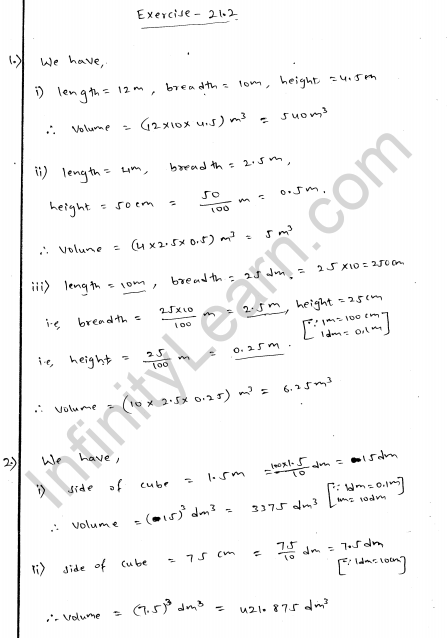 Exercise - 21.2
1.) We have,
i) length = 12m, breadth = 10m, height = 4.5m
∴ Volume = (12×10×4.5) m³ = 540m³
ii) length = 4m, breadth = 2.5m,
height = 50cm = 50/100 m = 0.5m.
∴ Volume = (4×2.5×0.5) m³ = 5m³
iii) length = 10m, breadth = 25 dm, = 25×10 = 250cm
i.e, breadth = 25×10/100 m = 2.5m, height = 25cm
[∵ 1m = 100cm
1dm = 0.1m]
i.e, height = 25/100 m = 0.25m.
∴ Volume = (10×2.5×0.25) m³ = 6.25m³
2.) We have,
i) side of cube = 1.5m = 100×1.5/10 dm = 15dm
∴ Volume = (15)³ dm³ = 3375 dm³ [∵ 1dm = 0.1m
1m = 10dm]
ii) side of cube = 75 cm = 75/10 dm = 7.5dm
[∵ 1dm = 10cm]
∴ Volume = (7.5)³ dm³ = 421.875 dm³
InfinityLearn.com